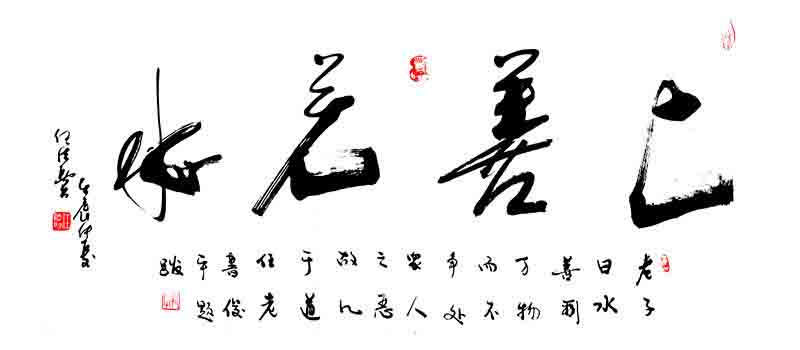 上善若水
老子
曰水
善利
万物
而不
争处
众人
之恶
故几
于道
任老
书俊
平题
跋
仲夏
任法融